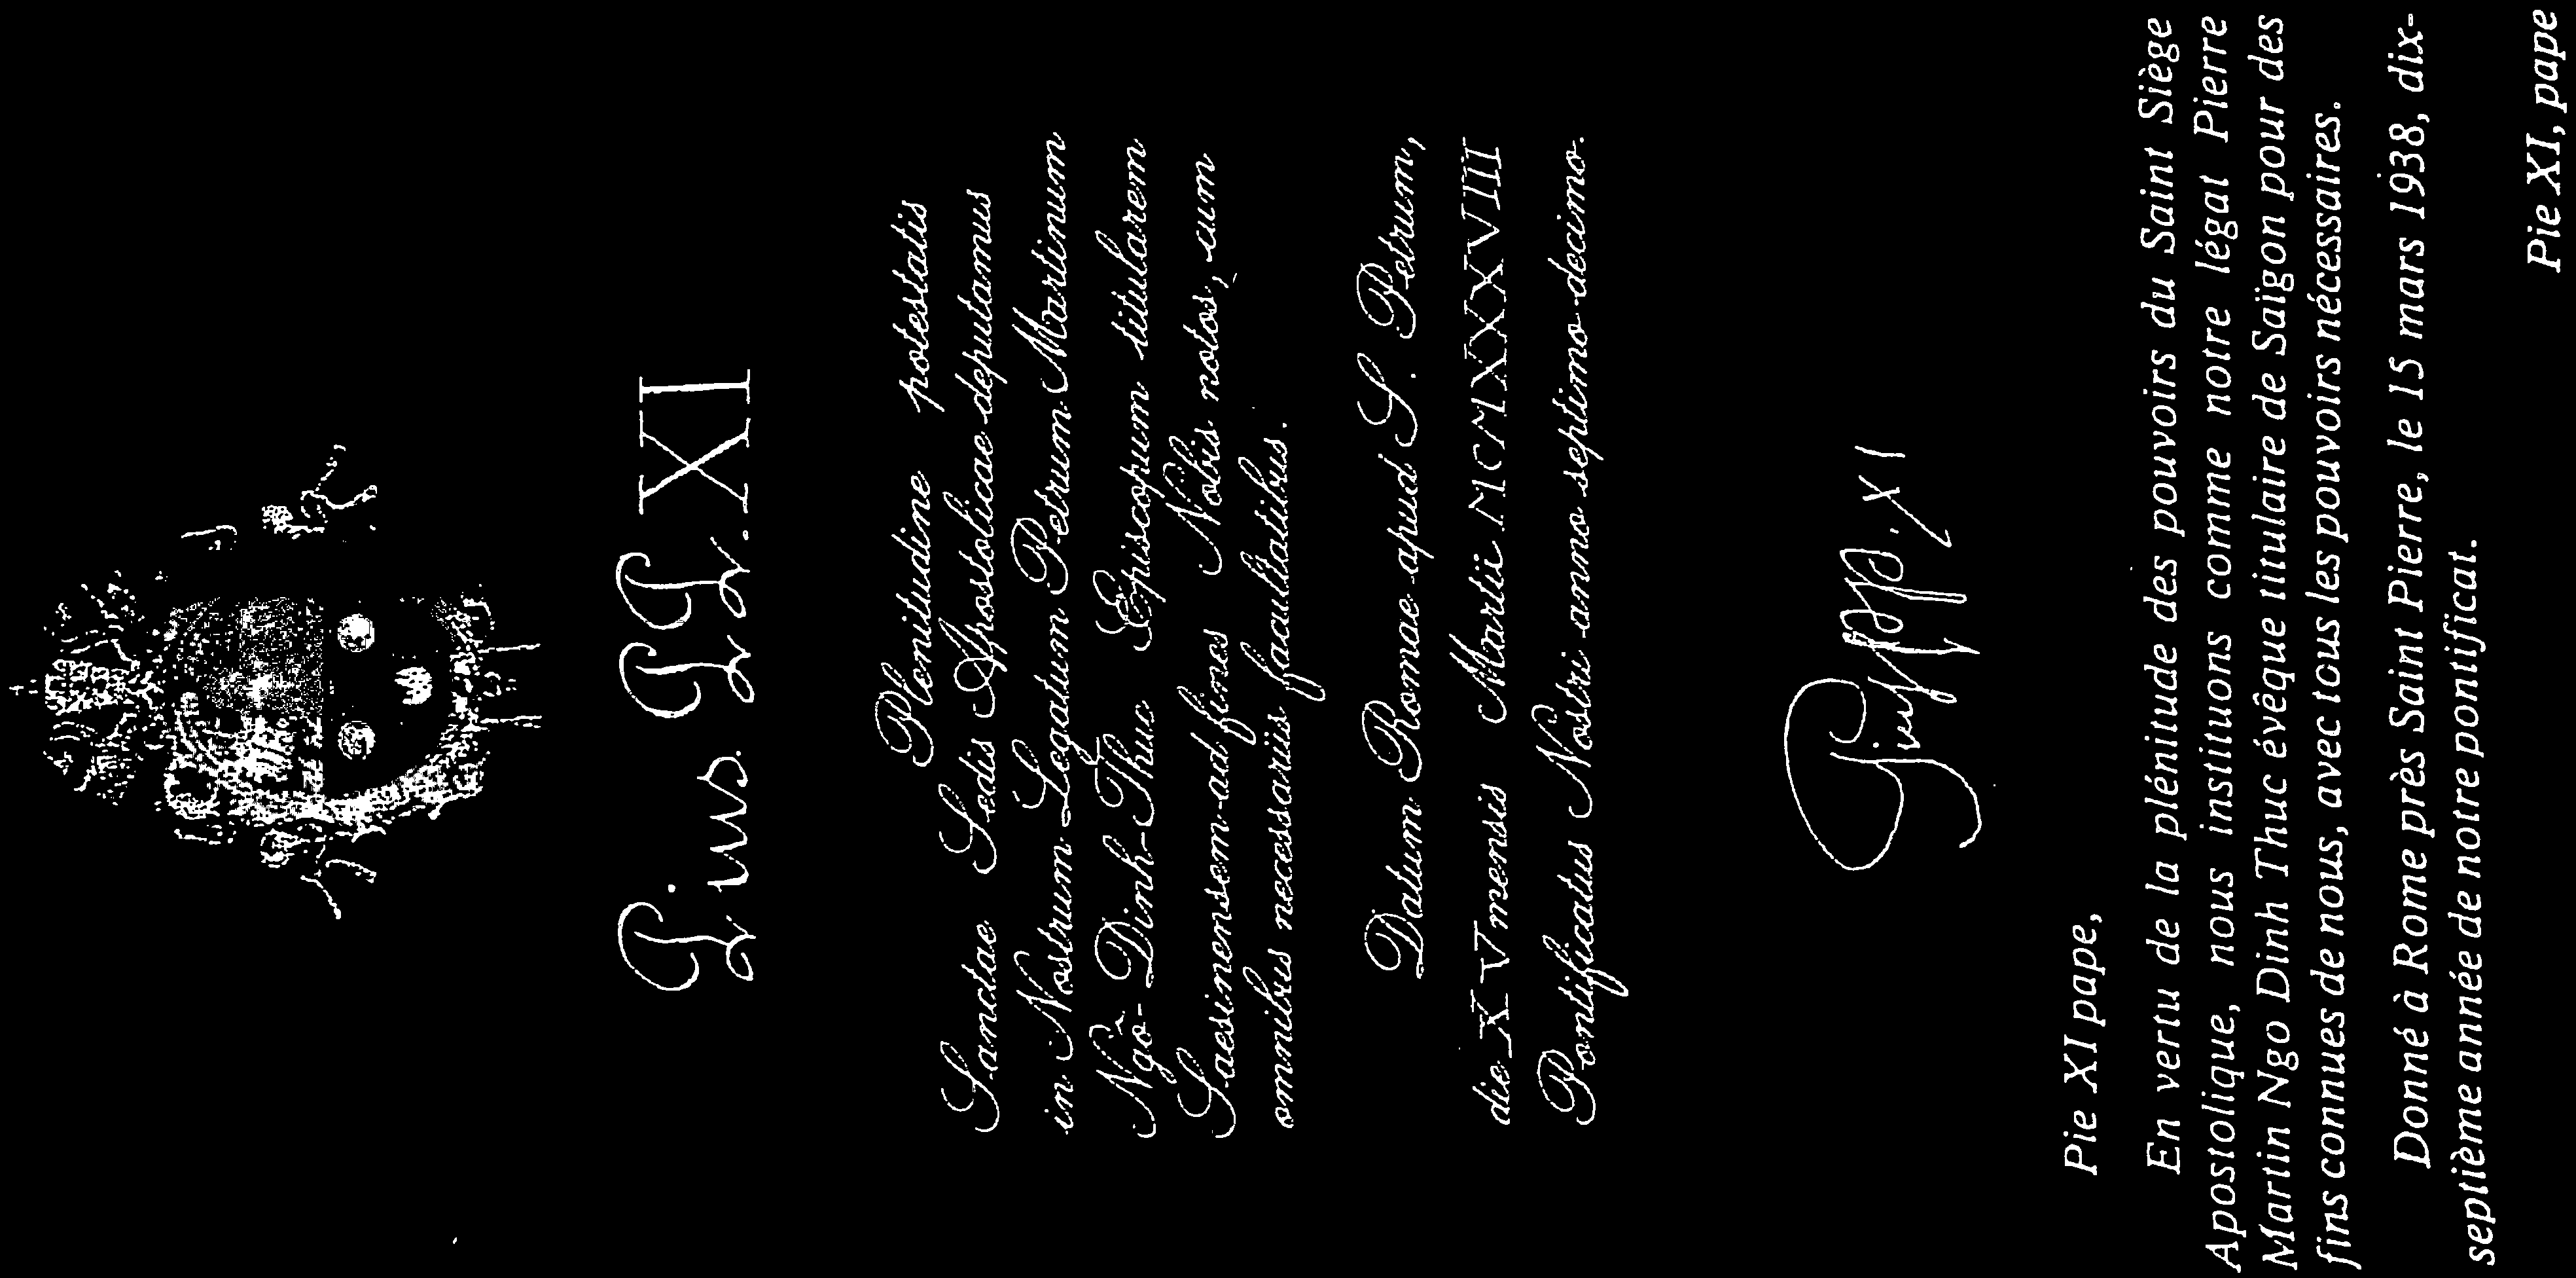 Pius PP. XI
Plenitudine potestatis
Sanctae Sedis Apostolicae deputamus
in Nostrum Legatum Petrum Martinum
Ngô-Dinh-Thuc Episcopum titularem
Saesinensem ad fines Nobis notos, cum
omnibus necessariis facultatibus.
Datum Romae apud S. Petrum,
die XV mensis Martii MCMXXXVIII
Pontificatus Nostri anno septimo decimo.
Pius PP. XI
Pie XI pape,
En vertu de la plénitude des pouvoirs du Saint Siège
Apostolique, nous instituons comme notre légat Pierre
Martin Ngo Dinh Thuc évêque titulaire de Saïgon pour des
fins connues de nous, avec tous les pouvoirs nécessaires.
Donné à Rome près Saint Pierre, le 15 mars 1938, dix-
septième année de notre pontificat.
Pie XI, pape